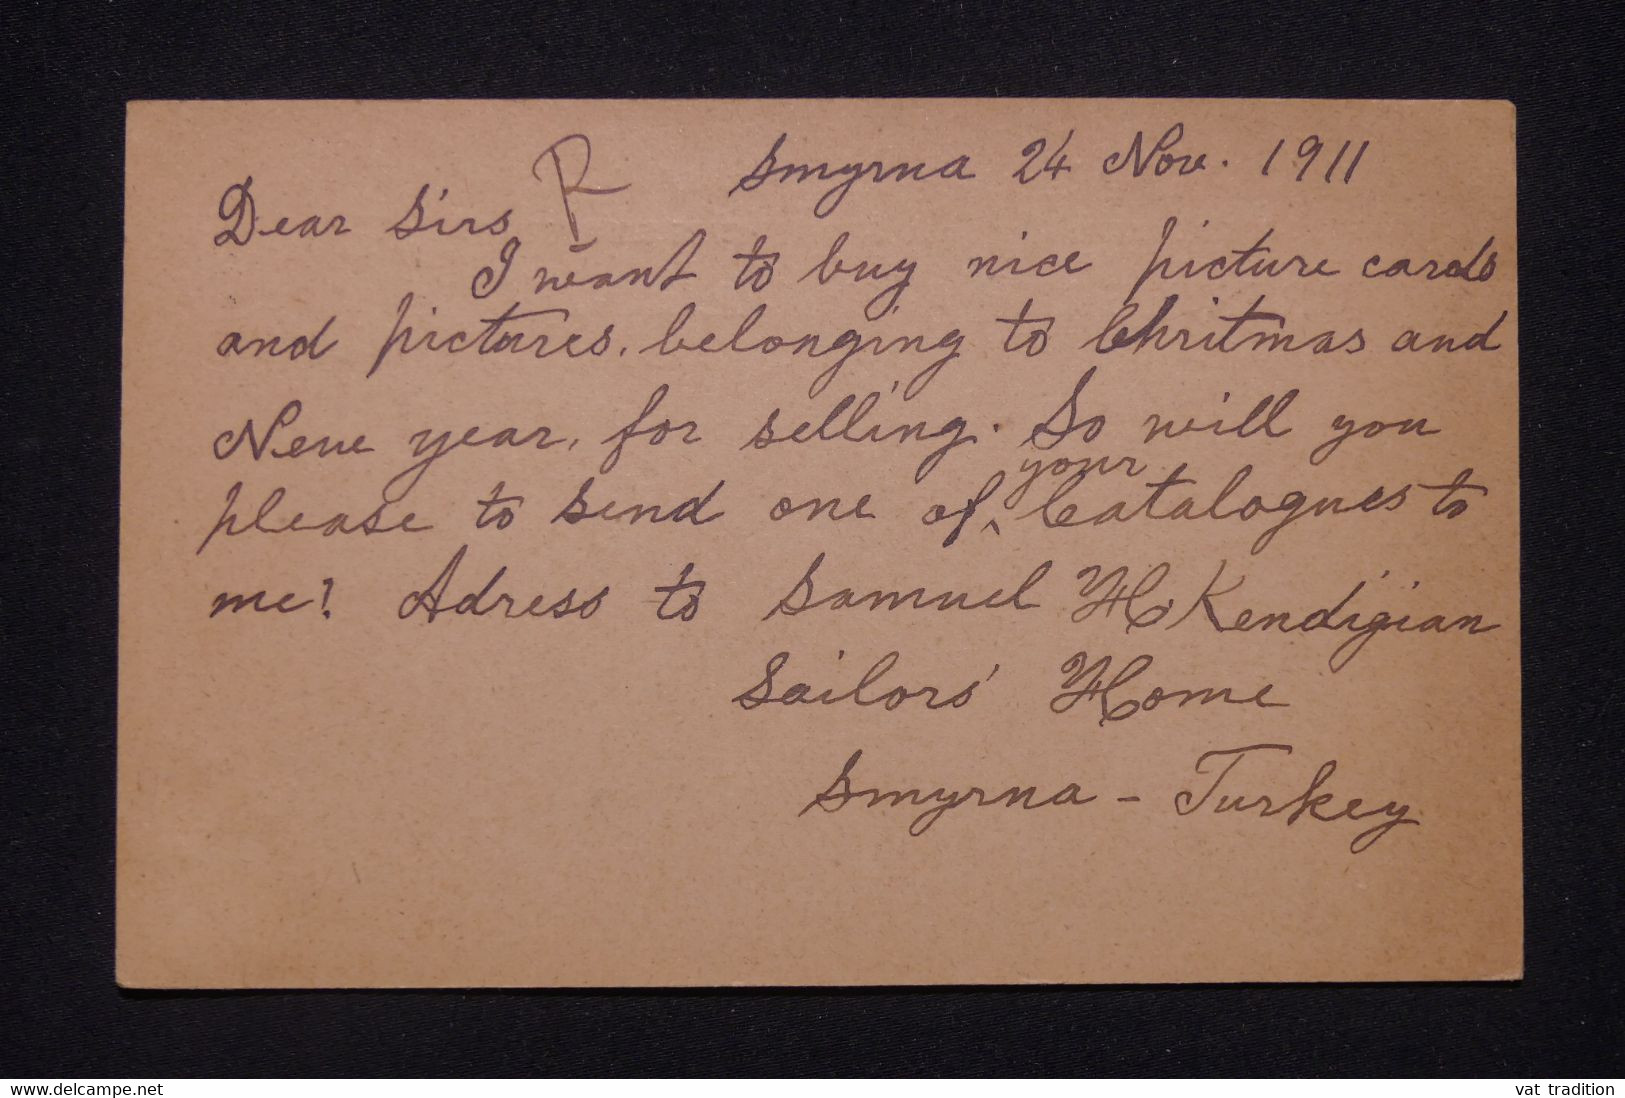 Smyrna 24 Nov. 1911
Dear Sirs R
I want to buy nice picture cards
and pictures, belonging to Chritmas and
New year, for selling. So will you
please to send one of your Catalogues to
me? Adress to Samuel H. Kendigian
Sailors' Home
Smyrna - Turkey
www.delcampe.net
vat tradition